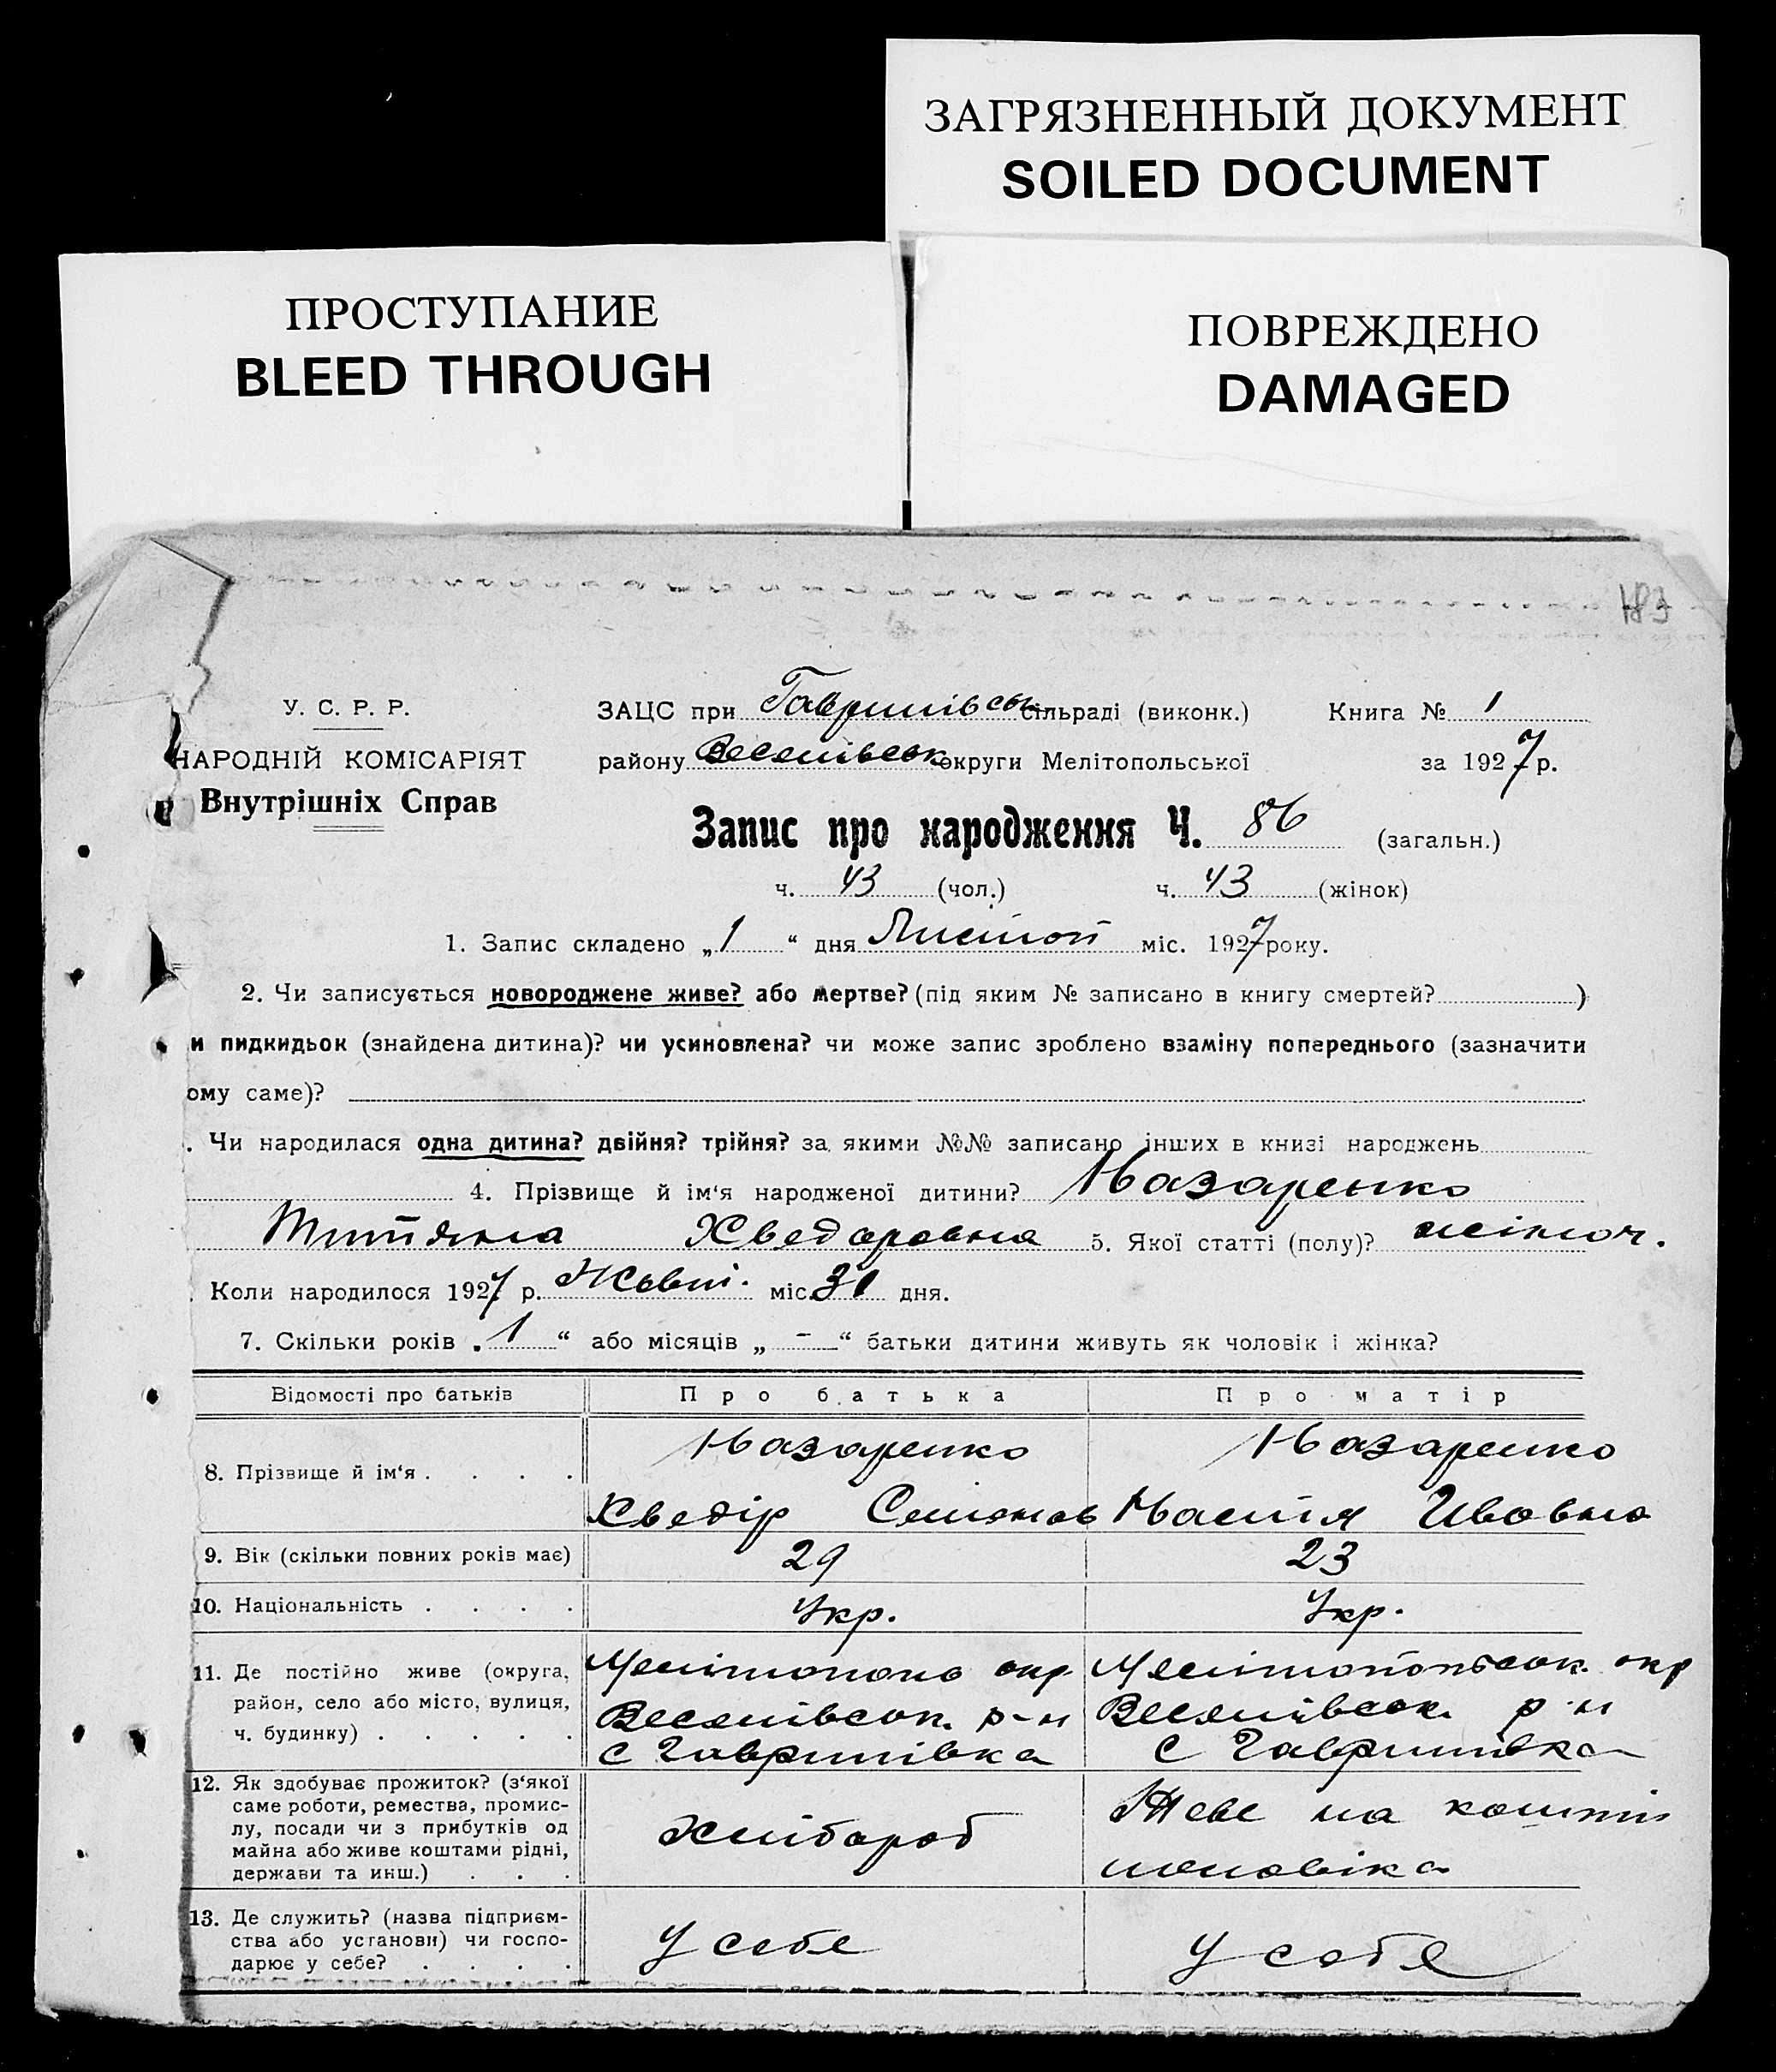 ЗАГРЯЗНЕННЫЙ ДОКУМЕНТ
SOILED DOCUMENT
ПРОСТУПАНИЕ
BLEED THROUGH
ПОВРЕЖДЕНО
DAMAGED
183
У. С. Р. Р.
НАРОДНІЙ КОМІСАРІЯТ
Внутрішніх Справ
ЗАЦС при Гаврилівськ сільраді (виконк.) Книга № 1
району Веселівськ округи Мелітопольської за 1927 р.
Запис про народження Ч. 86 (загальн.)
ч. 43 (чол.) ч. 43 (жінок)
1. Запис складено „1“ дня Листоп міс. 1927 року.
2. Чи записується новороджене живе? або мертве? (під яким № записано в книгу смертей? )
и пидкидьок (знайдена дитина)? чи усиновлена? чи може запис зроблено взаміну попереднього (зазначити
ому саме)?
. Чи народилася одна дитина? двійня? трійня? за якими №№ записано інших в книзі народжень
4. Прізвище й ім‘я народженої дитини? Назаренко
Хведоровна 5. Якої статті (полу)? жіноч.
. Коли народилося 1927 р. Жовт. міс. 31 дня.
7. Скільки років „1“ або місяців „-“ батьки дитини живуть як чоловік і жінка?
Відомості про батьків Про батька Про матір
8. Прізвище й ім‘я . . . . Назаренко Назаренко
Хведір Семенов Настя Ивовна
9. Вік (скільки повних років має) 29 23
10. Національність . . . . Укр. Укр.
11. Де постійно живе (округа, район, село або місто, вулиця, ч. будинку) . . . . .
окр. Веселівськ. р-н с Гаврилівка
Мелітопольськ. окр Веселівськ. р-н с Гаврилівка
12. Як здобуває прожиток? (з‘якої саме роботи, ремества, промислу, посади чи з прибутків од майна або живе коштами рідні, держави та инш.) . . .
Хлібороб
Живе на кошти чоловіка
13. Де служить? (назва підприємства або установи) чи господарює у себе? . . . .
У себе У себе